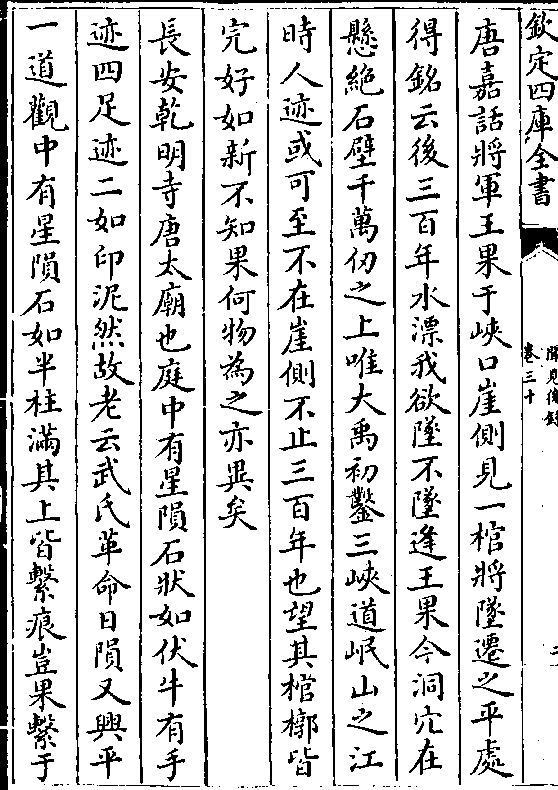 欽定四庫全書
聞見後録
卷三十
二
唐嘉話將軍王果于峽口崖側見一棺將墜遷之平處
得銘云後三百年水漂我欲墜不墜逢王果今洞穴在
懸絶石壁千萬仞之上唯大禹初鑿三峽道岷山之江
時人迹或可至不在崖側不止三百年也望其棺槨皆
完好如新不知果何物為之亦異矣
長安乾明寺唐太廟也庭中有星隕石狀如伏牛有手
迹四足迹二如印泥然故老云武氏革命日隕又興平
一道觀中有星隕石如半柱滿其上皆繫痕豈果繫于